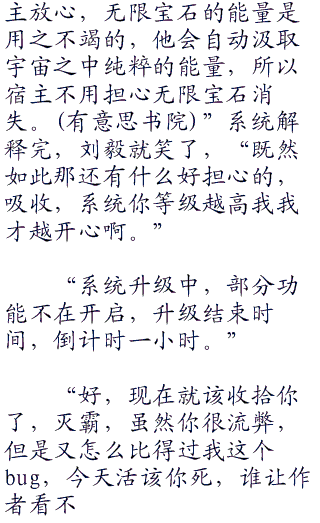 主放心，无限宝石的能量是
用之不竭的，他会自动汲取
宇宙之中纯粹的能量，所以
宿主不用担心无限宝石消
失。(有意思书院)”系统解
释完，刘毅就笑了，“既然
如此那还有什么好担心的，
吸收，系统你等级越高我我
才越开心啊。”
“系统升级中，部分功
能不在开启，升级结束时
间，倒计时一小时。”
“好，现在就该收拾你
了，灭霸，虽然你很流弊，
但是又怎么比得过我这个
bug，今天活该你死，谁让作
者看不